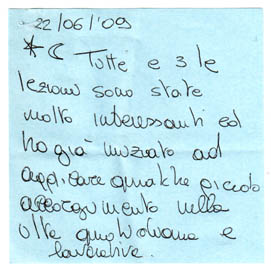 22/06/'09
Tutte e 3 le
lezioni sono state
molto interessanti ed
ho già iniziato ad
applicare qualche piccolo
accorgimento nella
vita quotidiana e
lavorativa.